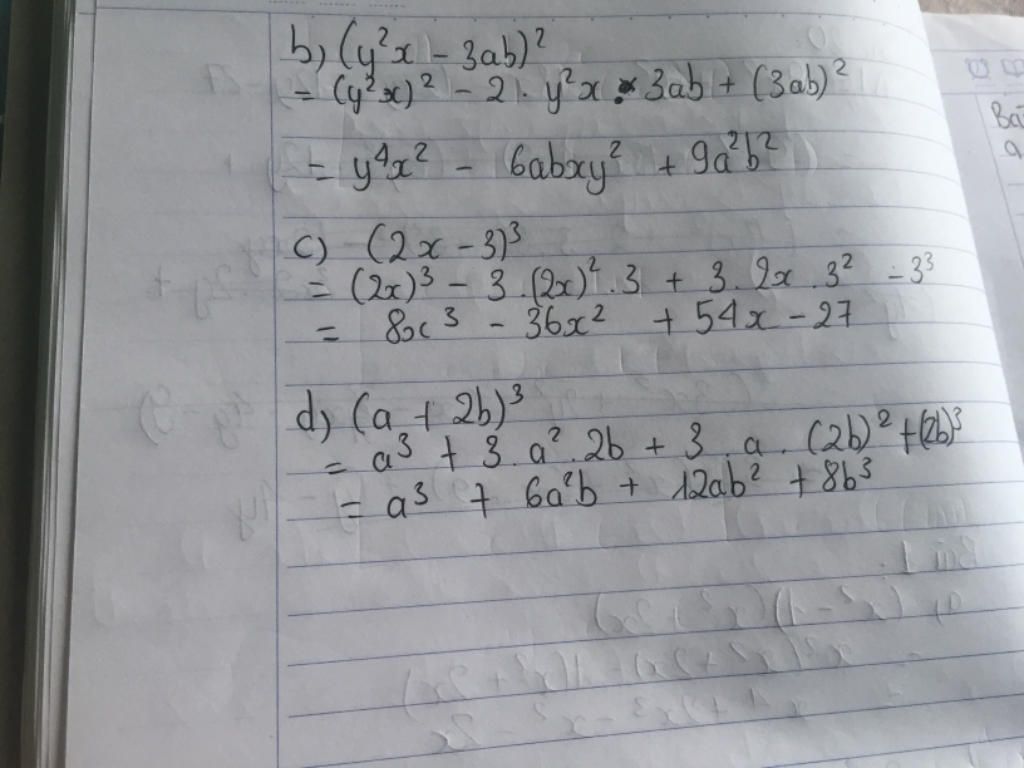 b) (y²x - 3ab)²
= (y²x)² - 2 . y²x . 3ab + (3ab)²
= y⁴x² - 6abxy² + 9a²b²
c) (2x - 3)³
= (2x)³ - 3 . (2x)² . 3 + 3 . 2x . 3² - 3³
= 8x³ - 36x² + 54x - 27
d) (a + 2b)³
= a³ + 3 . a² . 2b + 3 . a . (2b)² + (2b)³
= a³ + 6a²b + 12ab² + 8b³